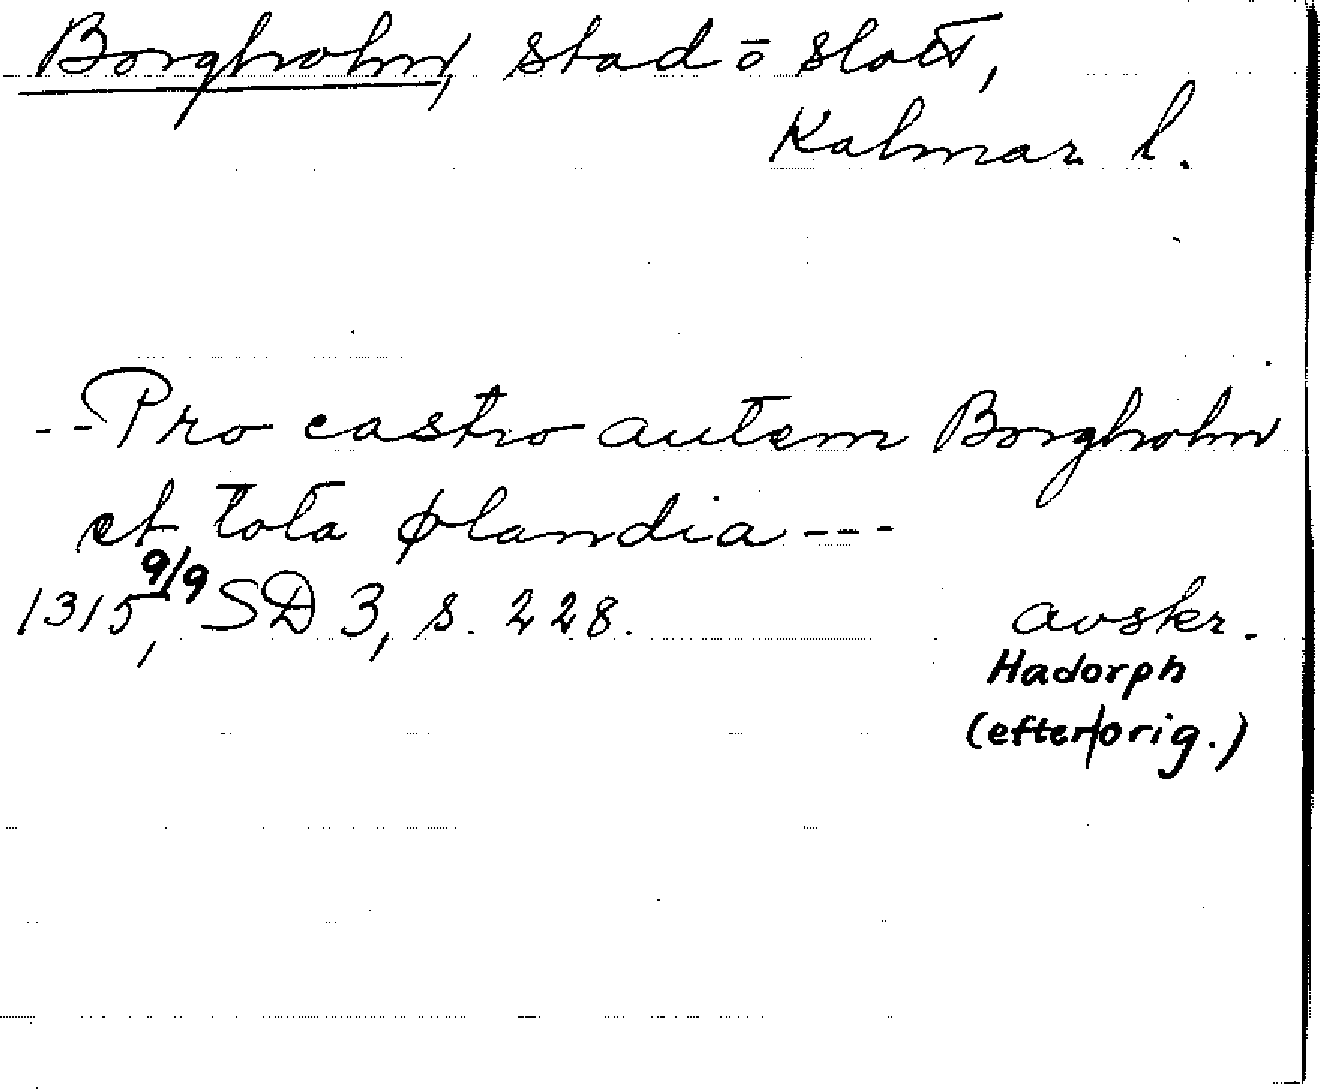 Borgholm, stad ō slott,
Kalmar l.
--Pro castro autem Borgholm
et tota ølandia ---
1315, 9/9 SD 3, s. 228.
avskr.
Hadorph
(efter orig.)